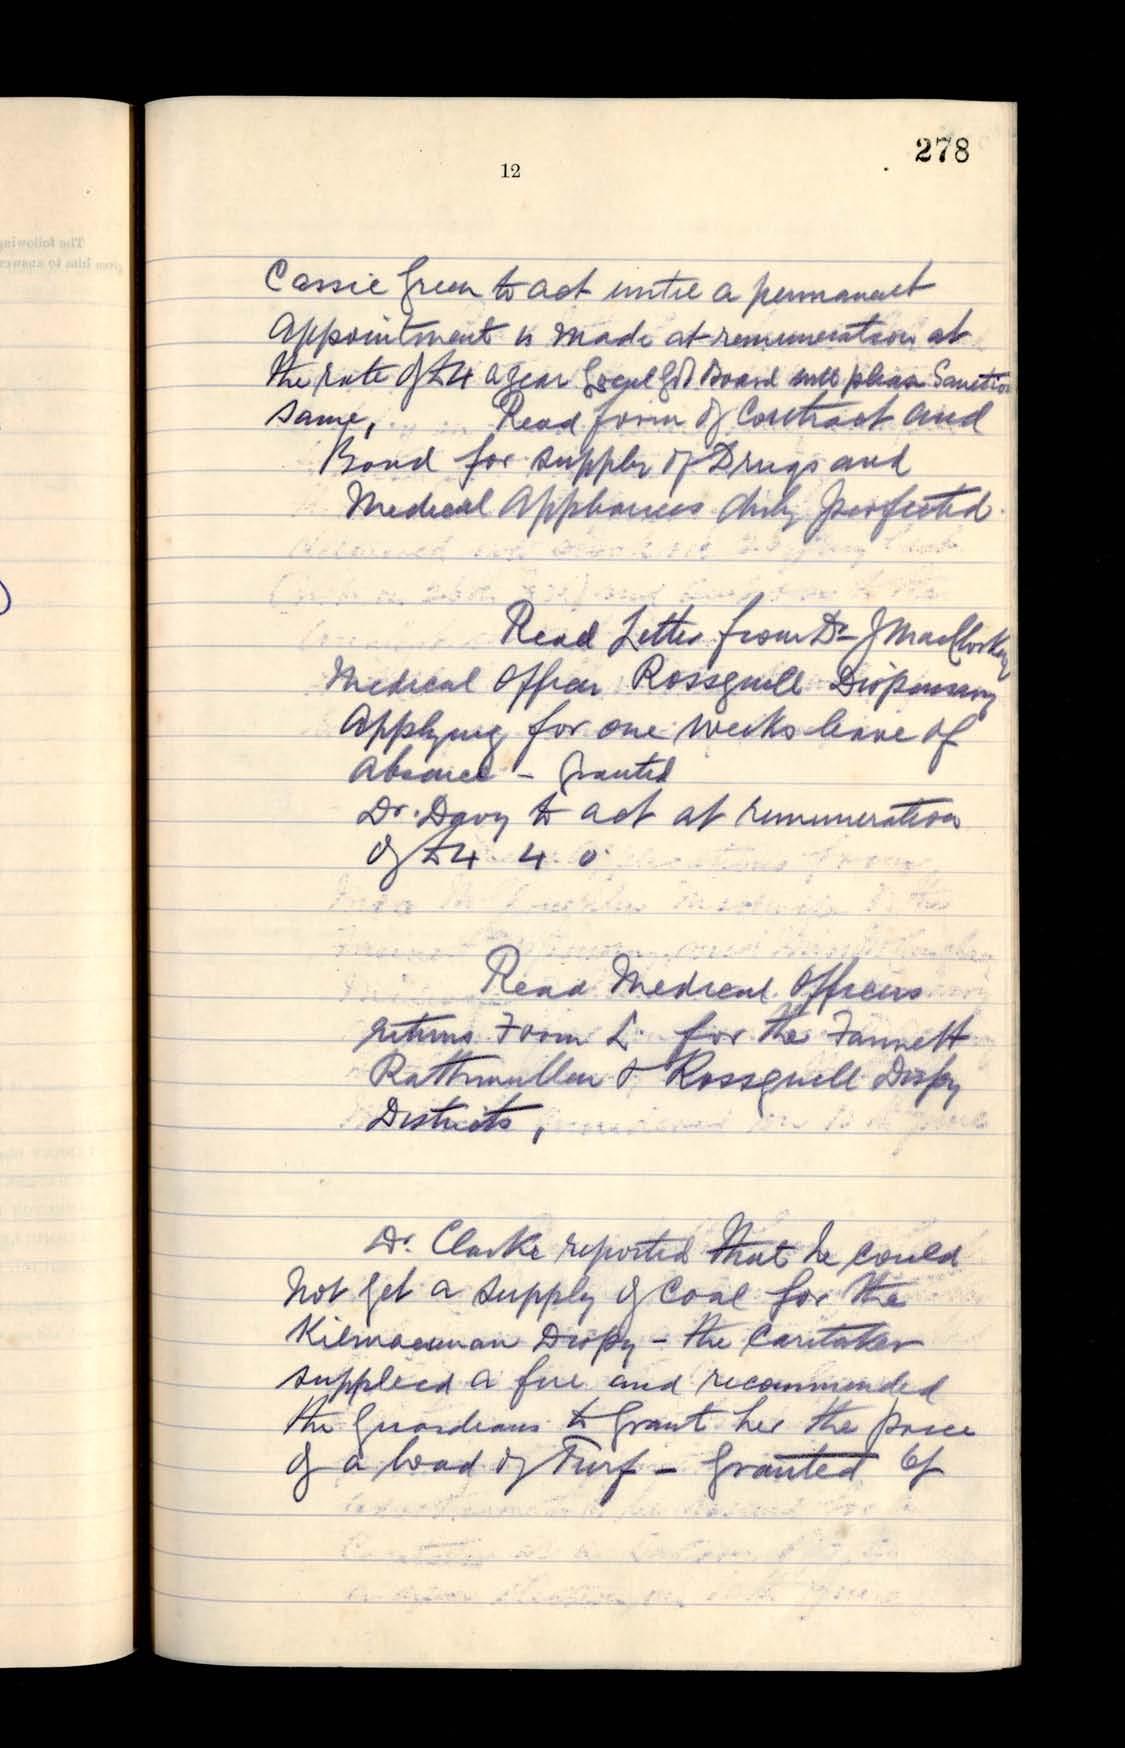 278
12
Cassie Green to act until a permanent
appointment is made at remuneration at
the rate of £4 a year Local Govt Board will please Sanction
same, Read form of Contract and
Bond for supply of Drugs and
Medical Appliances duly perfected.
Read Letter from Dr J MacCloskey
Medical Officer Rossguill Dispensary
Applying for one weeks leave of
absence - Granted
Dr. Davy to act at remuneration
of £4 4 0
Read Medical Officers
returns Form L. for the Fannett
Rathmullen & Rossguill Dispy
Districts,
Dr. Clarke reported that he could
not get a supply of Coal for the
Kilmacrenan Dispy - the Caretaker
supplied a fire and recommended
the Guardians to grant her the price
of a load of Turf - Granted 6/